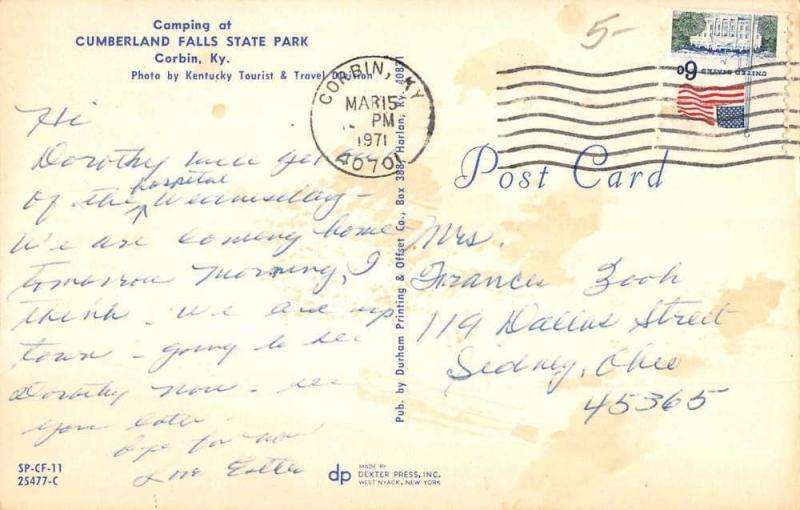 Camping at
CUMBERLAND FALLS STATE PARK
Corbin, Ky.
Photo by Kentucky Tourist & Travel Division
5-
6c
UNITED STATES
CORBIN, KY
MAR 15
PM
1971
40701
Post Card
Hi
Dorothy will get
of the hospital Wednesday -
We are coming home
tomorrow morning, I
think - We are up
town - going to see
Dorothy now - see
you later
bye for now
Love
Pub. by Durham Printing & Offset Co., Box 388, Harlan, Ky. 40831
Mrs.
Frances
119 Dallas Street
Sidney, Ohio
45365
SP-CF-11
25477-C
dp
MADE BY
DEXTER PRESS, INC.
WEST NYACK, NEW YORK